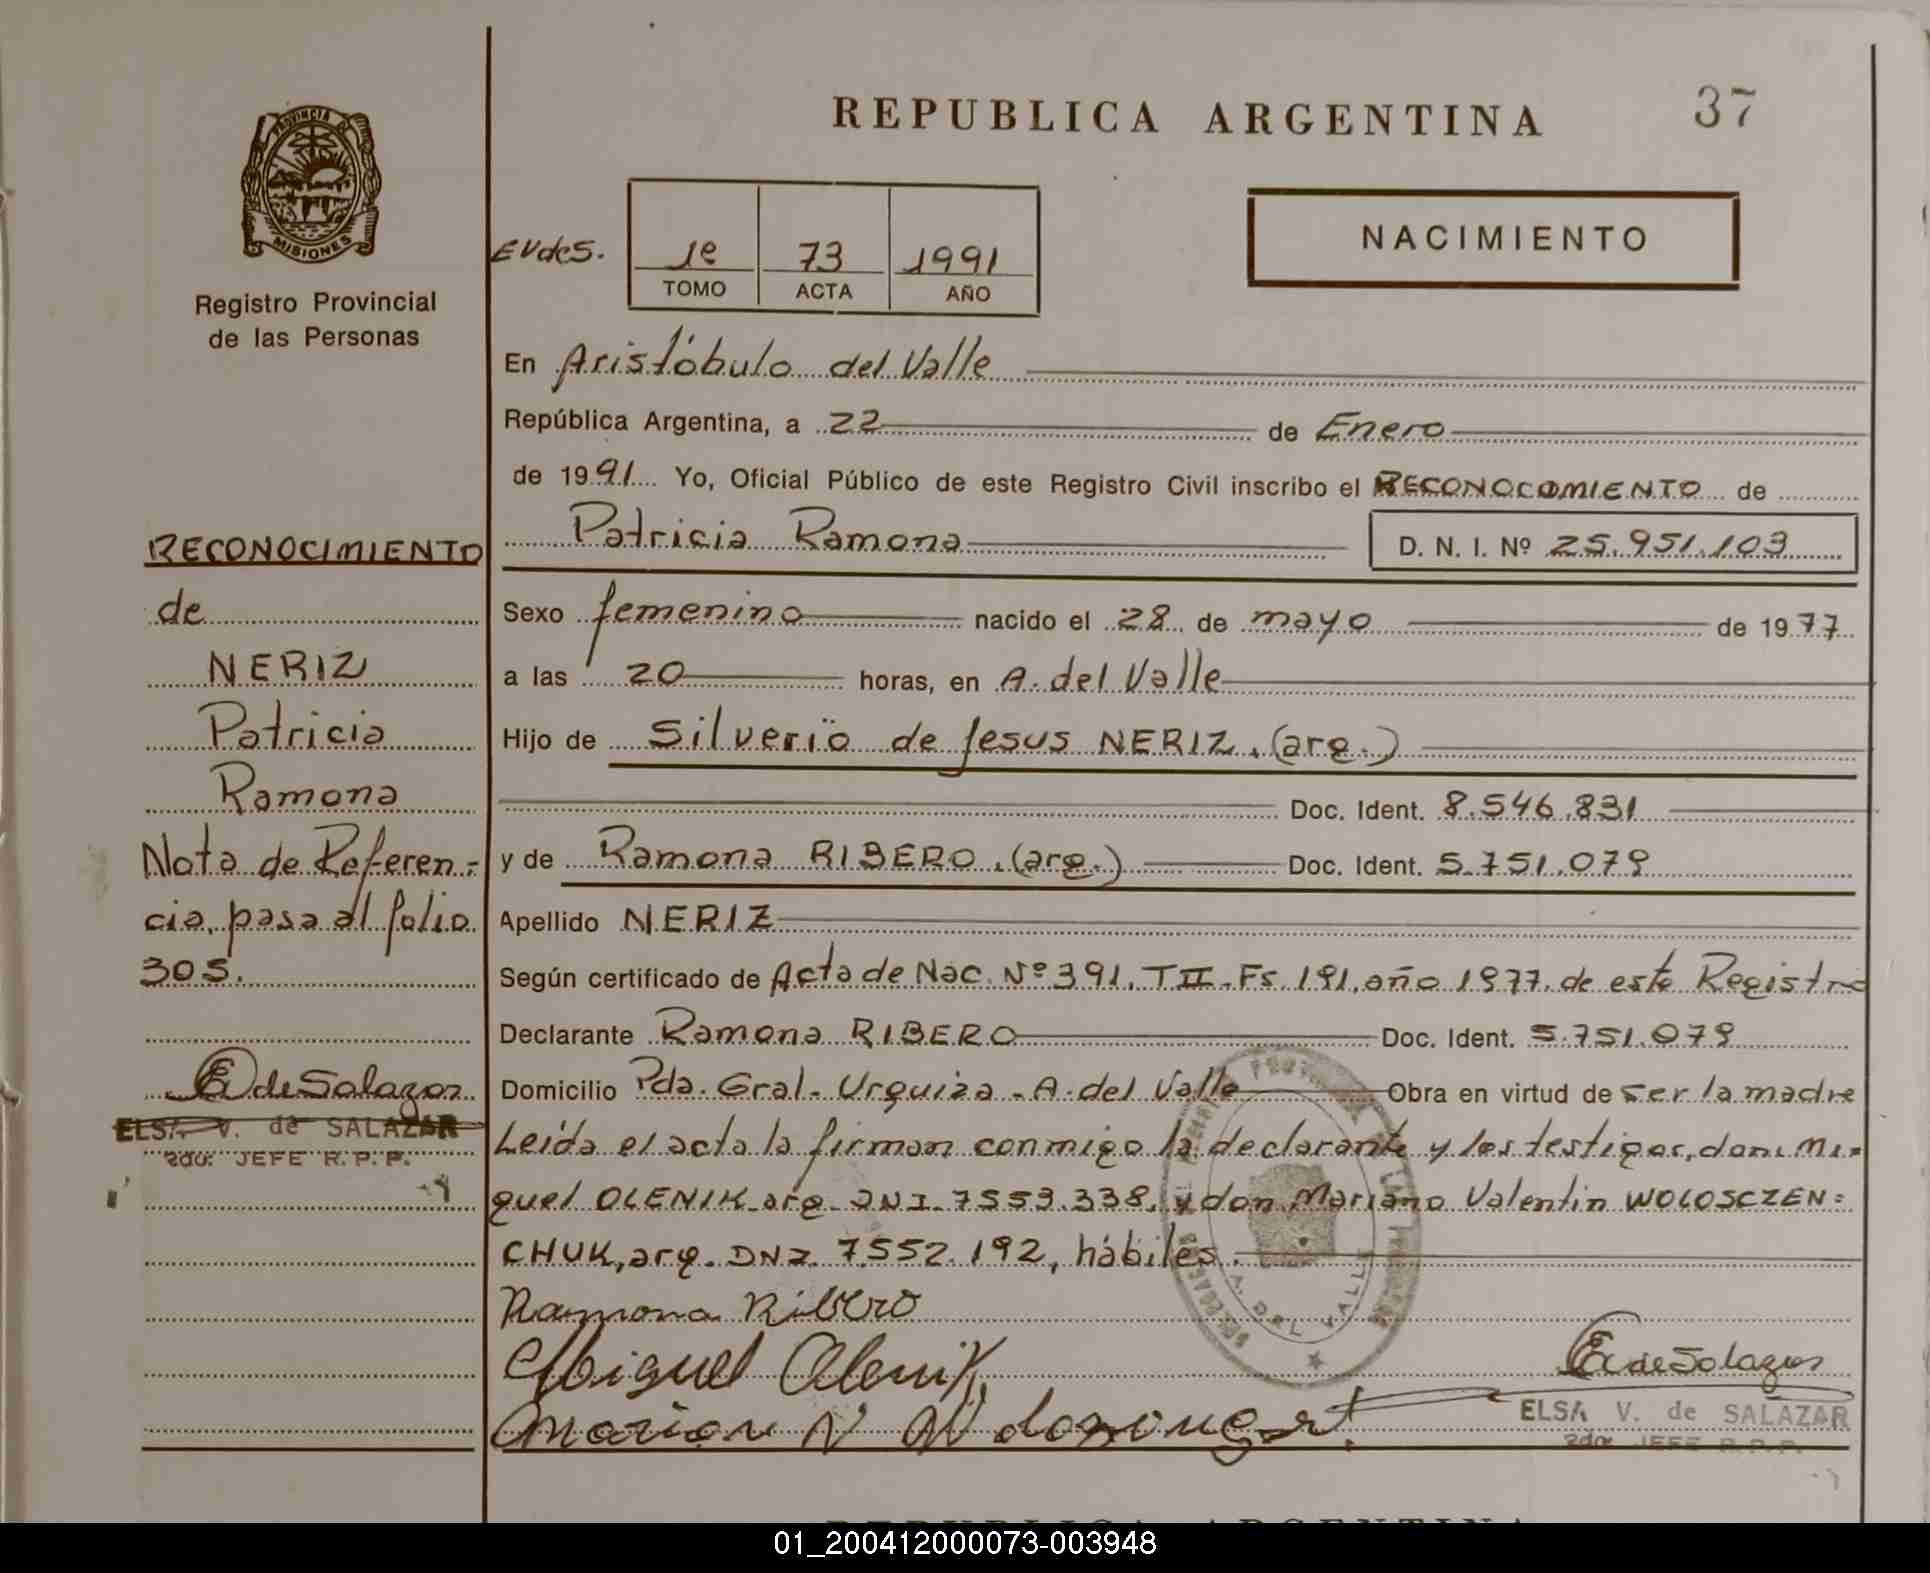 REPUBLICA ARGENTINA
37
PROVINCIA DE
MISIONES
Registro Provincial
de las Personas
EVdeS.
1e 73 1991
TOMO ACTA AÑO
NACIMIENTO
En Aristóbulo del Valle
República Argentina, a 22 de Enero
de 1991 Yo, Oficial Público de este Registro Civil inscribo el RECONOCOMIENTO de
Patricia Ramona D. N. I. Nº 25.951.103
Sexo femenino nacido el 28 de mayo de 1977
a las 20 horas, en A. del Valle
Hijo de Silverio de Jesus NERIZ. (arg.)
Doc. Ident. 8.546.831
y de Ramona RIBERO. (arg.) Doc. Ident. 5.751.079
Apellido NERIZ
Según certificado de Acta de Nac. Nº 391. T II. Fs. 191. año 1977. de este Registro
Declarante Ramona RIBERO Doc. Ident. 5.751.079
Domicilio Pda. Gral. Urquiza - A. del Valle Obra en virtud de ser la madre
Leída el acta la firman conmigo la declarante y los testigos, don: Mi=
guel OLENIK arg. DNI. 7553.338. y don Mariano Valentin WOLOSCZEN=
CHUK, arg. DNI. 7.552.192, hábiles.
Ramona Ribero
Miguel Olenik
EVdeSalazar
ELSA V. de SALAZAR
2do. JEFE R.P.P.
RECONOCIMIENTO
de
NERIZ
Patricia
Ramona
Nota de Referen=
cia, pasa al folio
305.
EVdeSalazar
ELSA V. de SALAZAR
2do. JEFE R.P.P.
A. DEL VALLE
REPUBLICA ARGENTINA
01_200412000073-003948